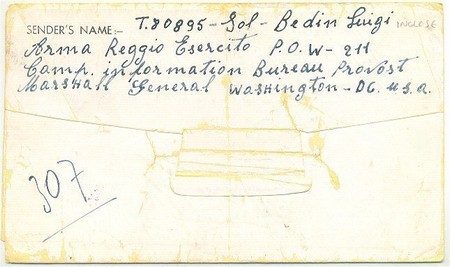 SENDER'S NAME:- T.80895 - Sol - Bedin Luigi
INCLOSE
Arma Reggio Esercito P.O.W - 211
Camp. information Bureau Provost
Marshall General Washington - DC. U.S.A.
307